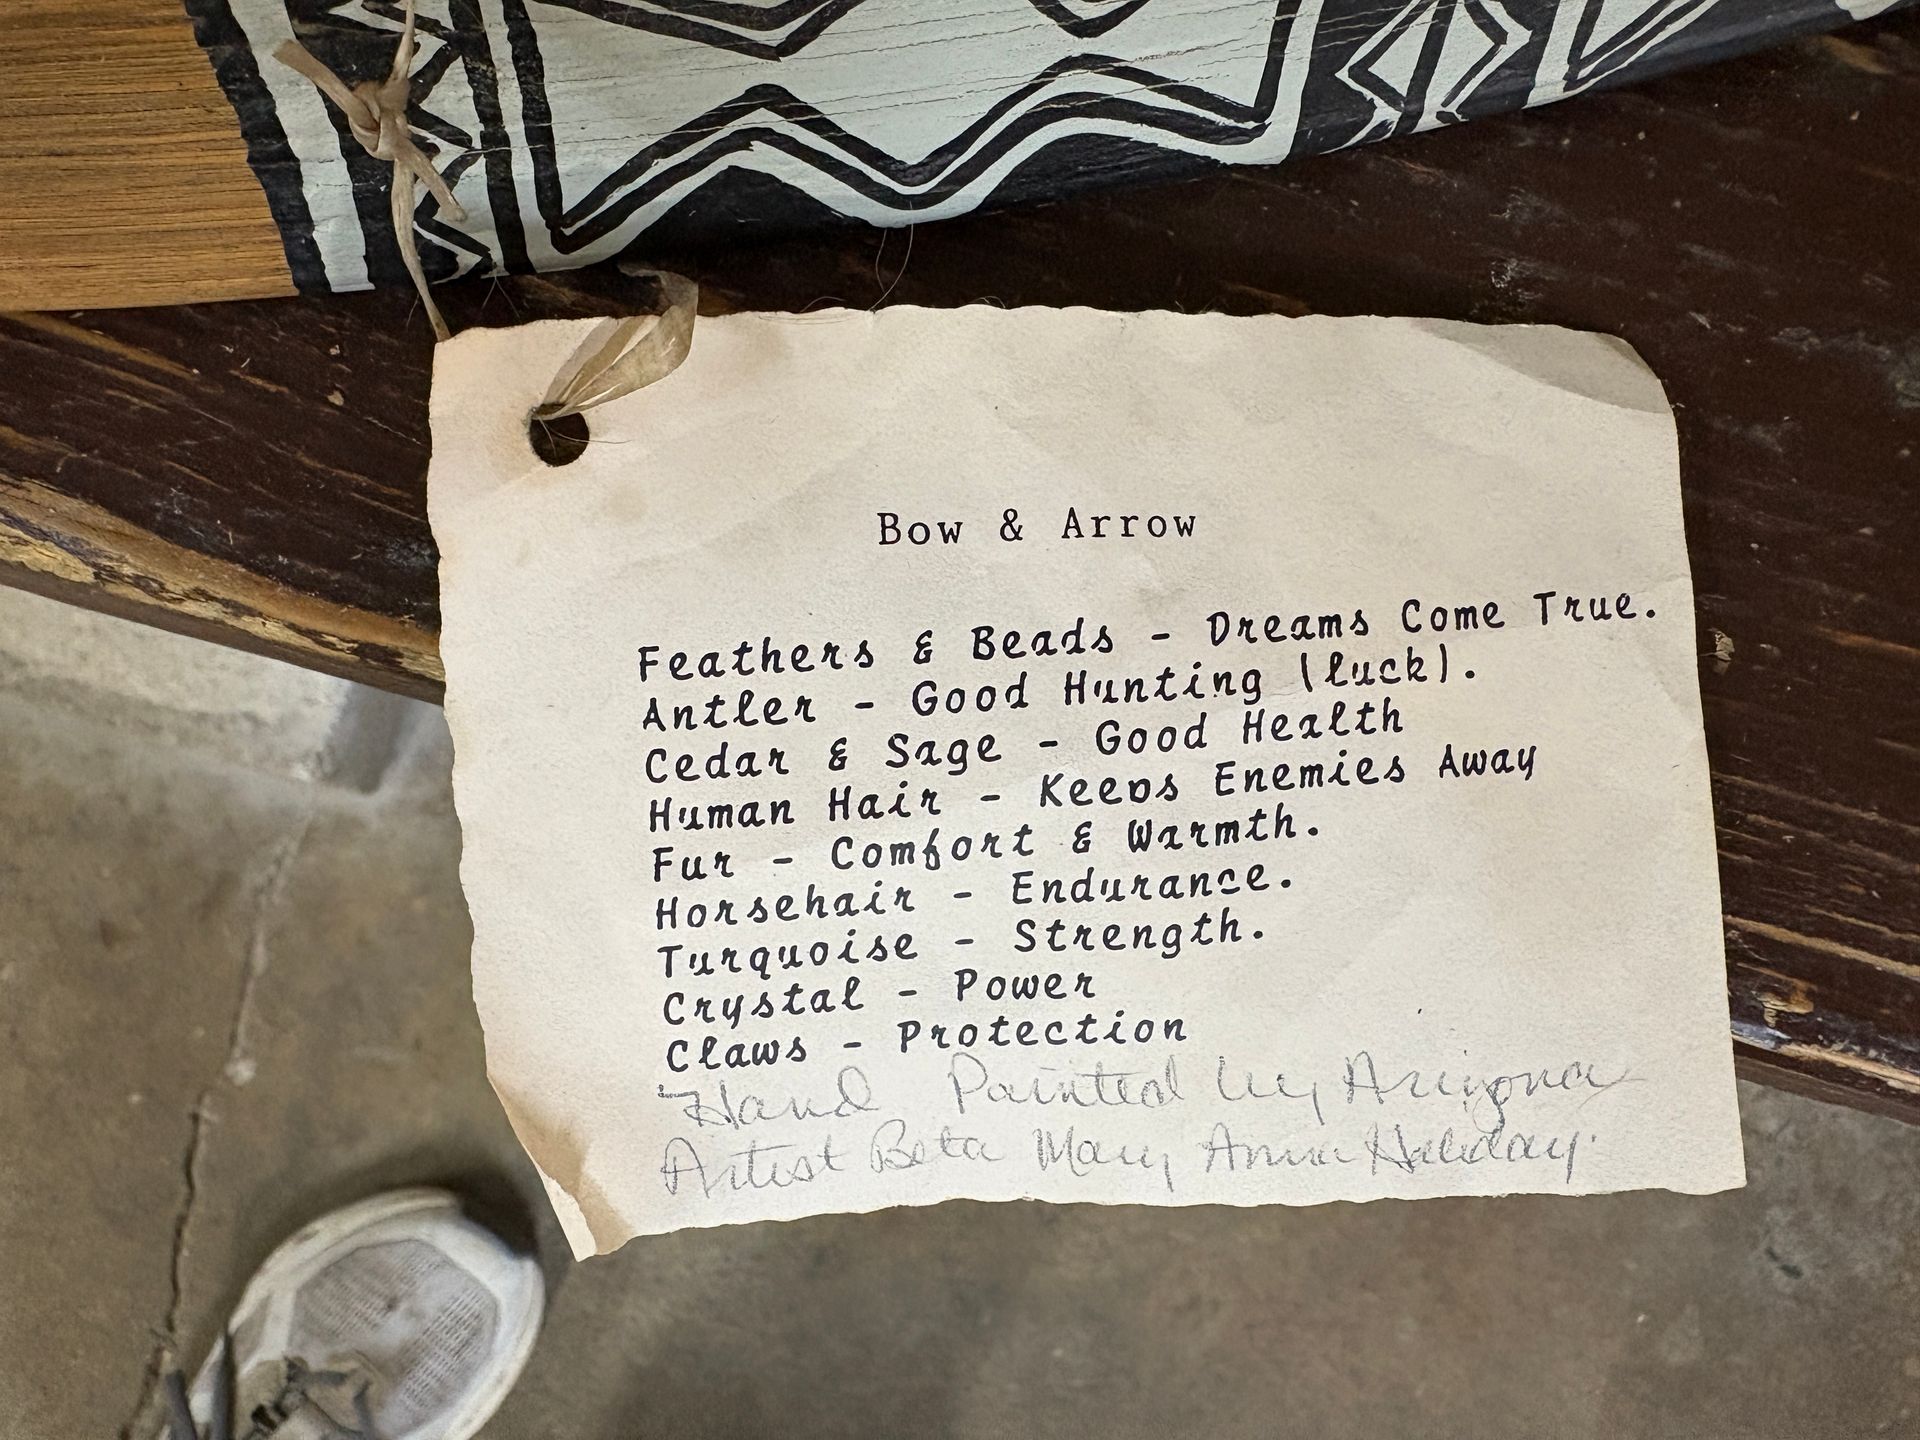 Bow & Arrow
Feathers & Beads - Dreams Come True.
Antler - Good Hunting (luck).
Cedar & Sage - Good Health
Human Hair - Keeps Enemies Away
Fur - Comfort & Warmth.
Horsehair - Endurance.
Turquoise - Strength.
Crystal - Power
Claws - Protection
Hand Painted by Arizona
Artist Beta Mary Anna Holiday.